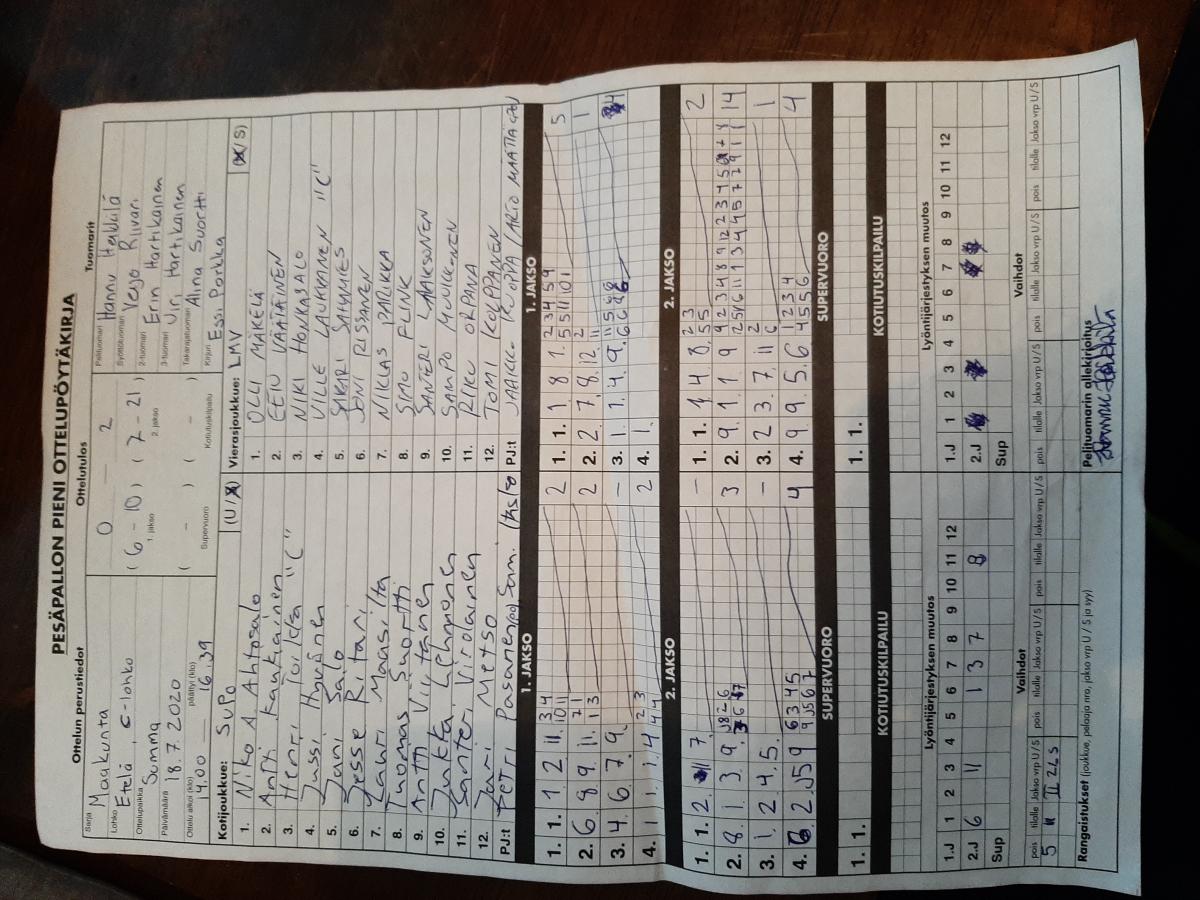 PESÄPALLON PIENI OTTELUPÖYTÄKIRJA
Ottelun perustiedot
Ottelutulos
Tuomarit
Sarja Maakunta
Lohko Etelä, C-lohko
Ottelupaikka Summa
Päivämäärä 18.7.2020
Ottelu alkoi (klo) 14.00 päättyi (klo) 16.39
0 — 2
( 6 - 10 ) ( 7 - 21 )
1. jakso 2. jakso
( - ) ( - )
Supervuoro Kotiutuskilpailu
Pelituomari Hannu Heikkilä
Syöttötuomari Veijo Riivari
2-tuomari Erin Hartikainen
3-tuomari Jiri Hartikainen
Takarajatuomari Alina Suortti
Kirjuri Essi Porkka
Kotijoukkue: SuPo (U / X)
1. Niko A Ahtosalo
2. Antti Kaukiainen
3. Henri Torkka "C"
4. Jussi Hyvönen
5. Juni Salo
6. Jesse Ritari
7. Lauri Maasilta
8. Tuomas Suortti
9. Antti Virtanen
10. Jukka Lehmonen
11. Santeri Virolainen
12. Jari Metso
PJ:t Petri Pasanen Sami
Vierasjoukkue: LMV (X / S)
1. OLLI MÄKELÄ
2. EETU VÄÄTÄINEN
3. NIKI HONKASALO
4. VILLE LAUKKANEN "C"
5. SAKARI SAHAMIES
6. JONI RISSANEN
7. NIKLAS PAUKKA
8. SIMO FLINK
9. SANTERI LAAKSONEN
10. SAMPO MOUKKINEN
11. RIKU ORPANA
12. TOMI KORPPANEN
PJ:t JAAKKO KUOPPA / ARTO MÄÄTTÄ
1. JAKSO
1. JAKSO
1. 1. 1 2 11. 3 4 2
10 11
2. 6. 8 9 11. 7 1 2
1 3
3. 4 6 7 9. –
4. 1 1 1. 4 2 3 2
4 4
1. 1. 1 8 1. 2 3 4 5 9 5
5 5 11 10 1
2. 2. 7. 8. 12. 2 1
11
3. 1. 1. 4. 9. 4
4. 1.
2. JAKSO
2. JAKSO
1. 1. 2. 11 7. –
2. 8. 1. 3. 9. 3
3. 1. 2 4. 5. –
4. 2. 5 9 6 3 4 5 4
9 5 6 7
1. 1. 1 4 8. 2 3 2
5 5
2. 9. 1. 1 9 14
3. 2 3. 7. 11 2 1
6
4. 9 9. 5. 6 1 2 3 4 4
4 5 5 6
SUPERVUORO
SUPERVUORO
1. 1.
1. 1.
KOTIUTUSKILPAILU
KOTIUTUSKILPAILU
Lyöntijärjestyksen muutos
Lyöntijärjestyksen muutos
1.J 1 2 3 4 5 6 7 8 9 10 11 12
2.J 6 11 1 3 7 8
Sup
1.J 1 2 3 4 5 6 7 8 9 10 11 12
2.J
Sup
Vaihdot
Vaihdot
pois tilalle Jakso vrp U / S pois tilalle Jakso vrp U / S pois tilalle Jakso vrp U / S
5 11 II 2 L S
pois tilalle Jakso vrp U / S pois tilalle Jakso vrp U / S pois tilalle Jakso vrp U / S
Rangaistukset (joukkue, pelaaja nro, jakso vrp U / S ja syy)
Pelituomarin allekirjoitus